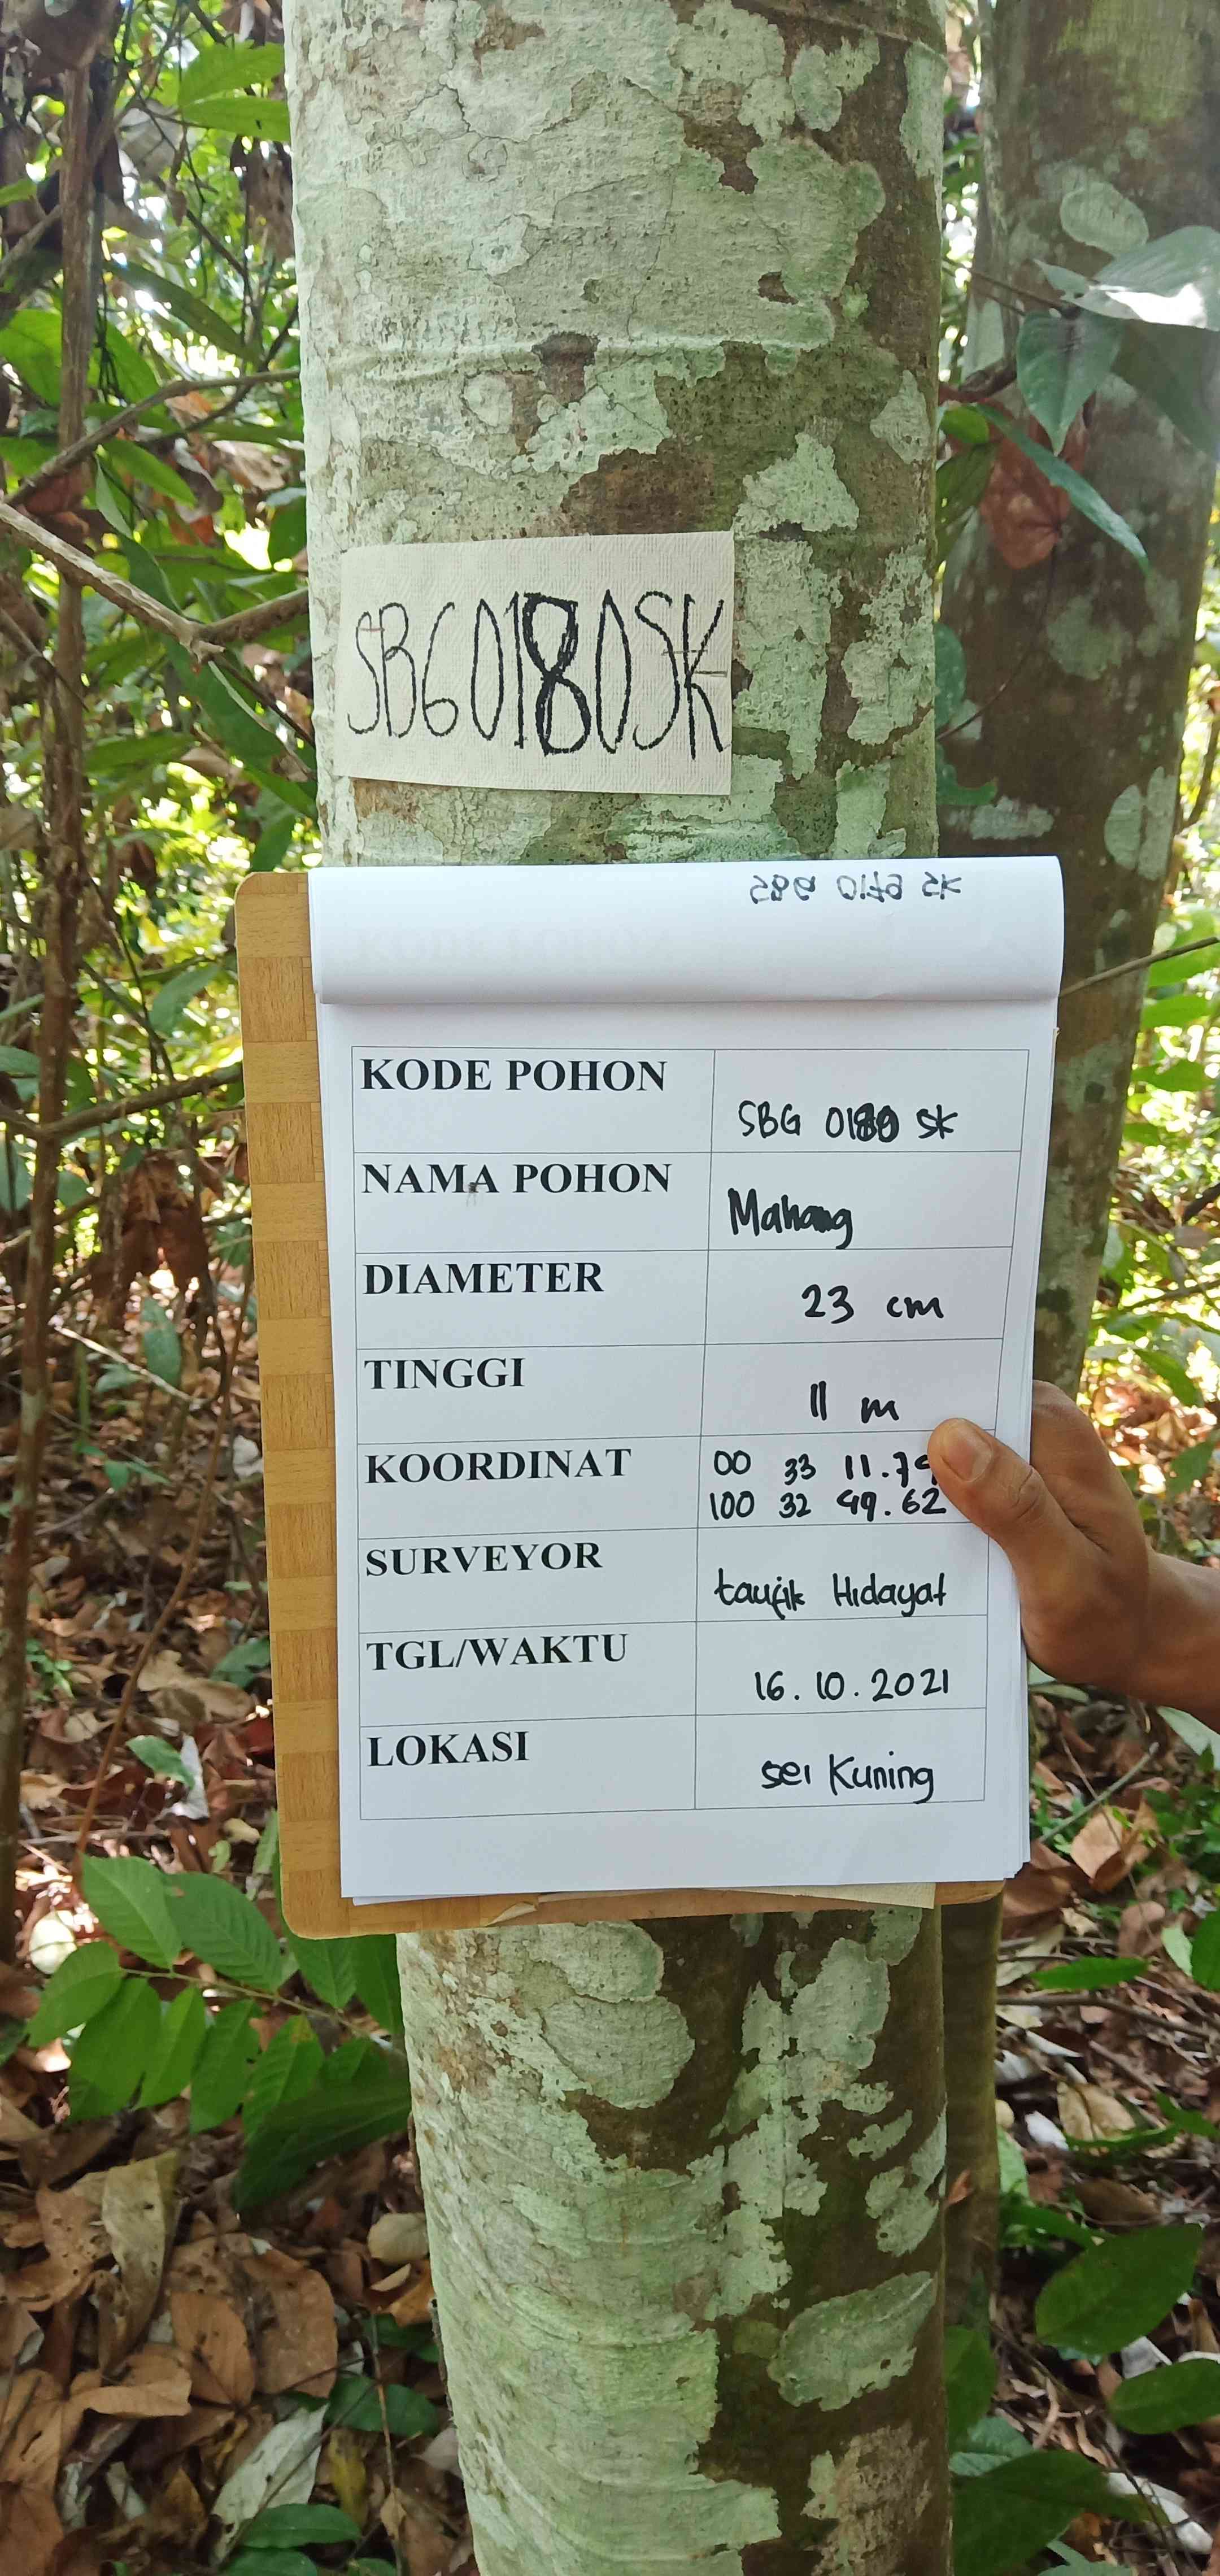 SBG0180SK
SBG 0179 SK
KODE POHON
SBG 0180 SK
NAMA POHON
Mahang
DIAMETER
23 cm
TINGGI
11 m
KOORDINAT
00 33 11.79
100 32 49.62
SURVEYOR
taufik Hidayat
TGL/WAKTU
16.10.2021
LOKASI
sei Kuning